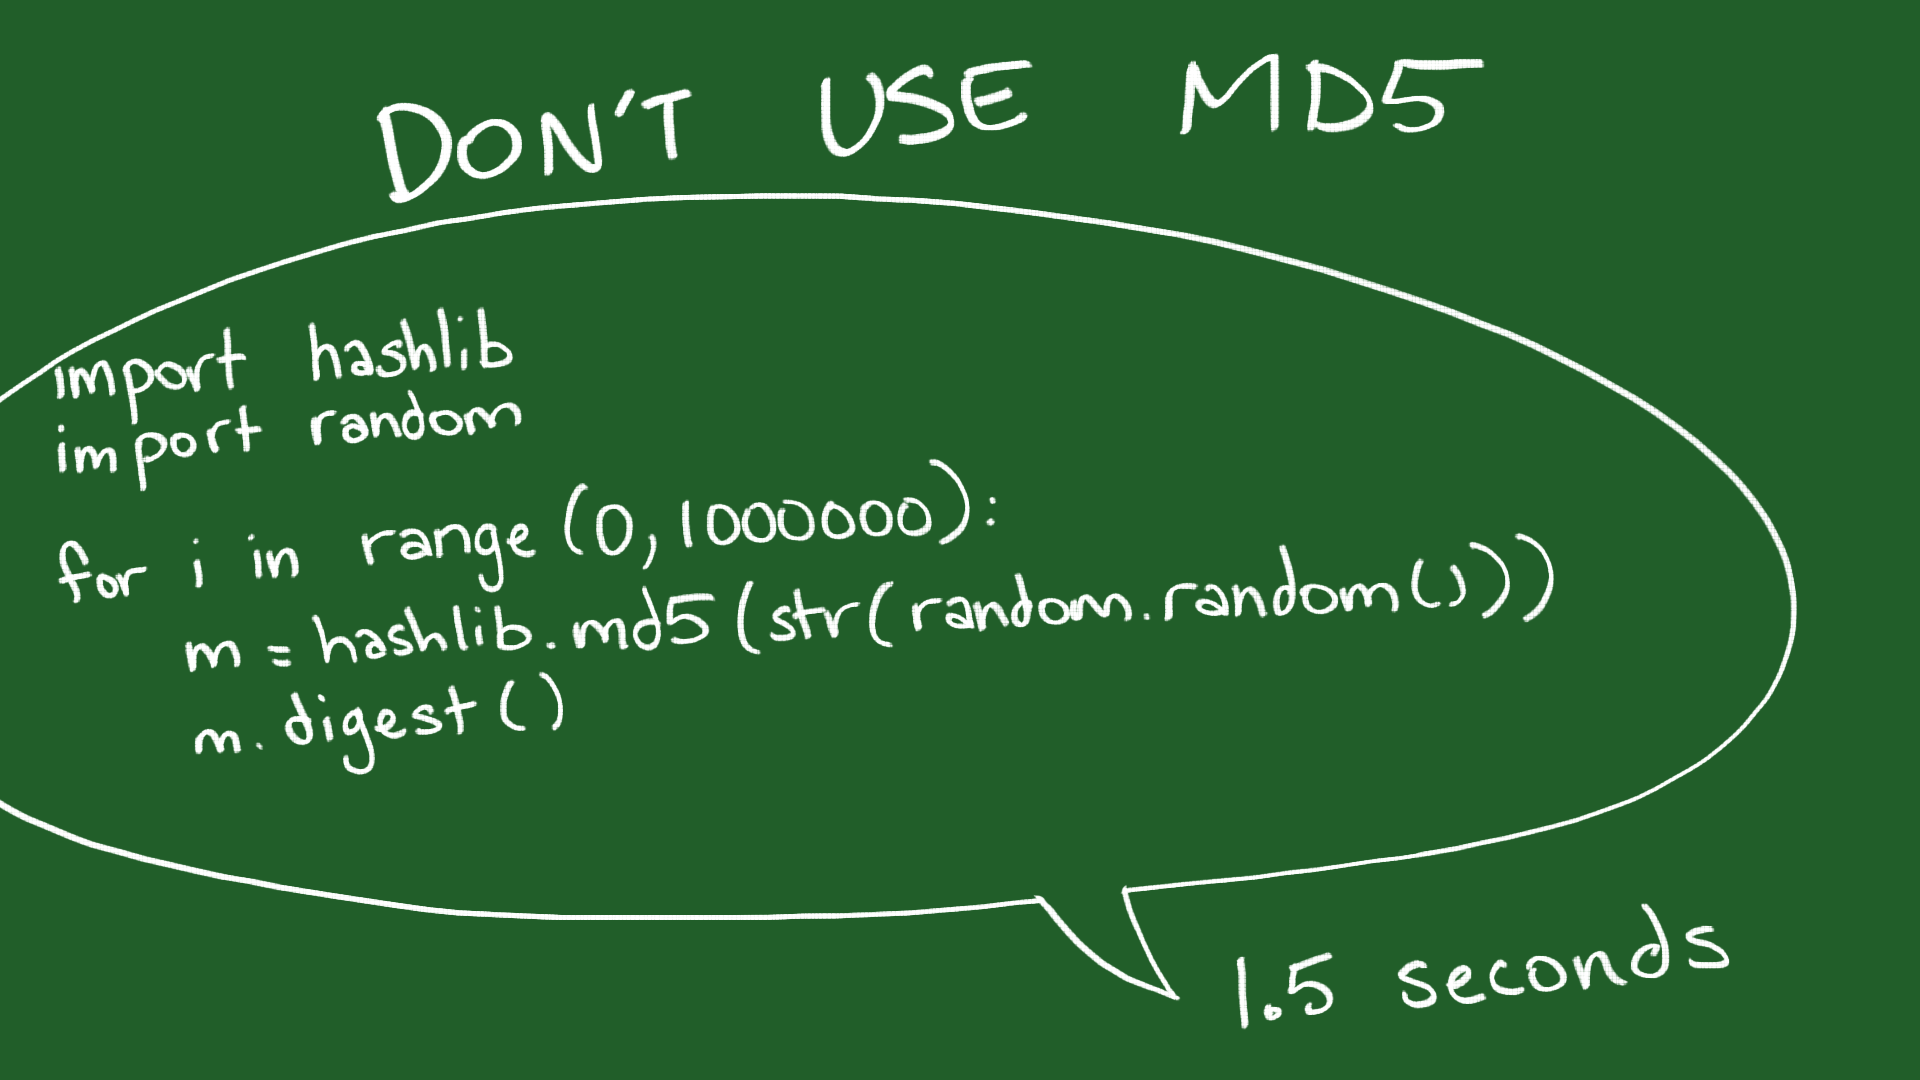 DON'T USE MD5
import hashlib
import random
for i in range (0, 1000000):
m = hashlib.md5 (str(random.random()))
m.digest()
1.5 seconds